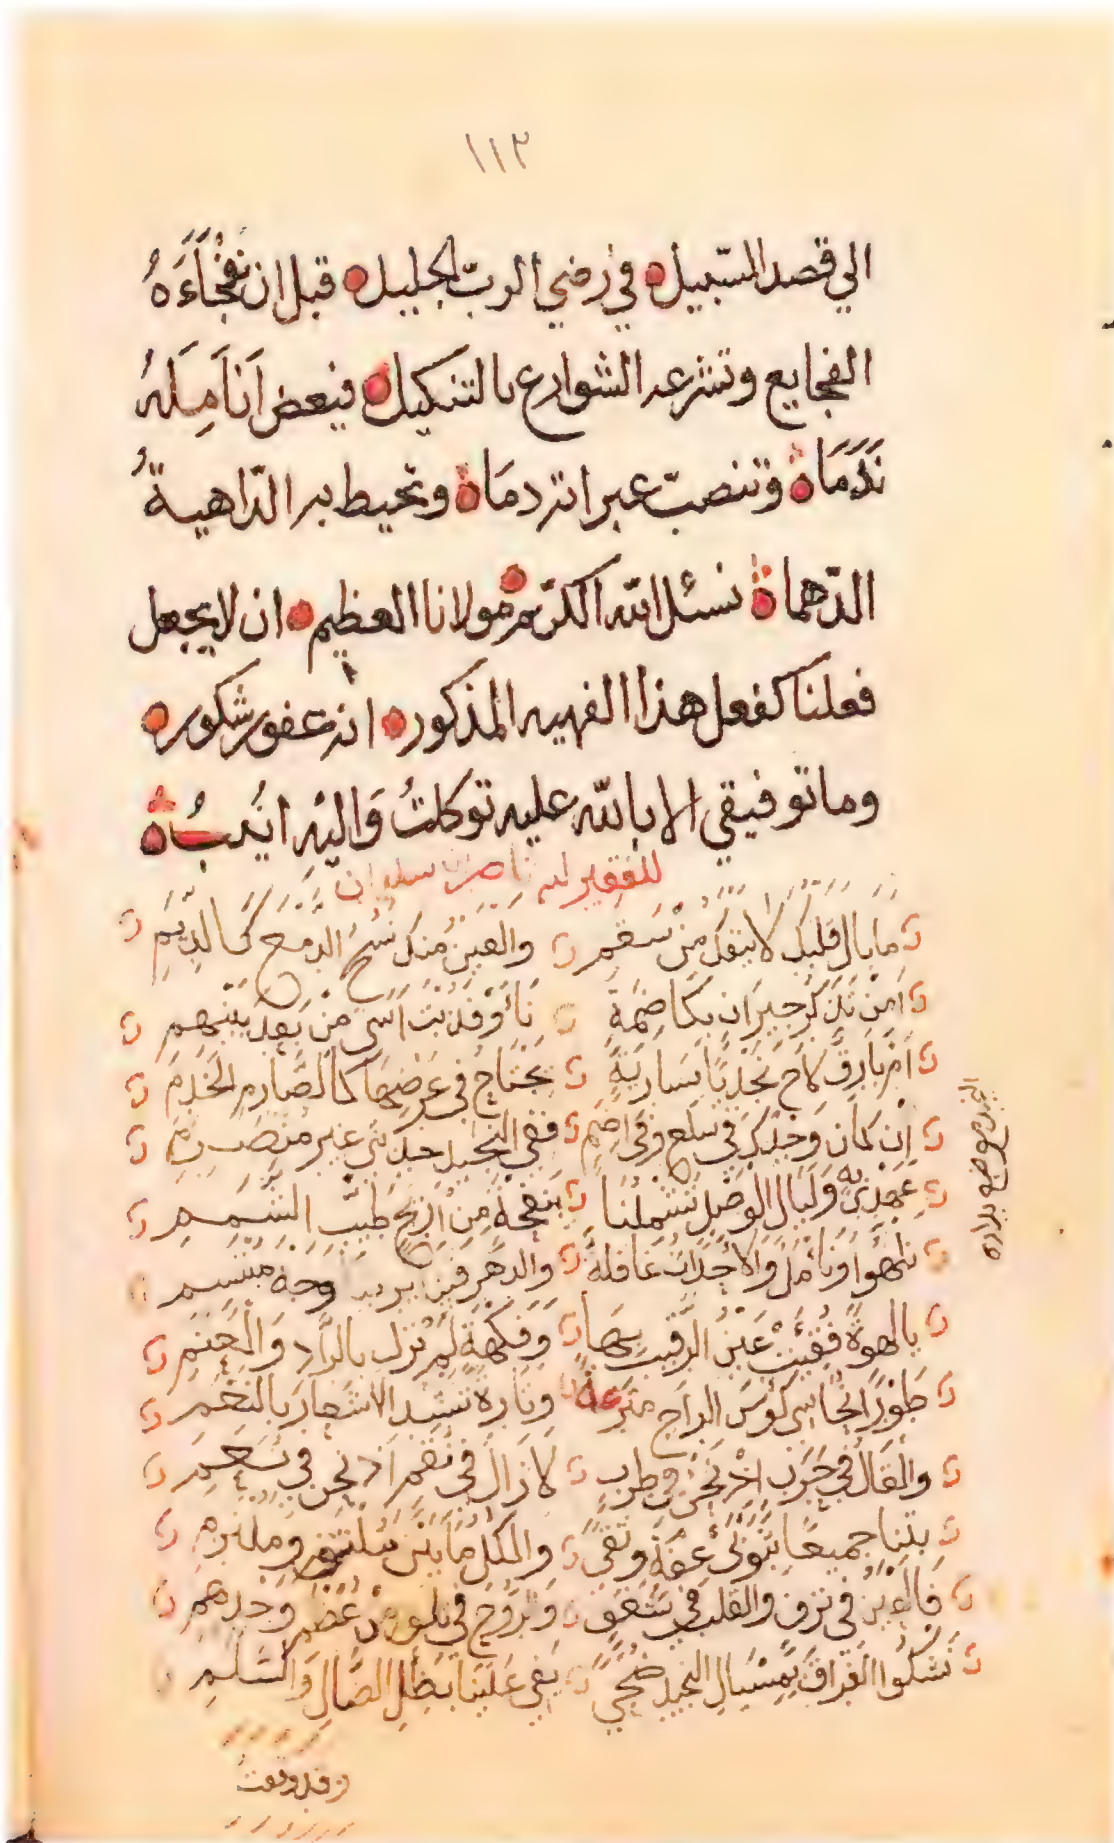 ١١٢
الي قصد السّبيل ه في رضي الرب الجليل ه قبل ان تَفْجَأَءَهُ
الفجايع وتشرعه الشوارع بالتنكيل ه فيعض اَنَامِلَهُ
نَدَمَاه وتنصبّ عبراته دمَاه وتحيط به الدّاهيةُ
الدّهماه نسئل الله الكريم مولانا العظيم ه ان لا يجعل
فعلنا كفعل هذا الفهيه المذكور ه انه غفور شكور ه
وما توفيقي الا بالله عليه توكلتُ وَاليْهِ انيبُ ه
للفقير لله ناصر بن سليمان
ما بال قلبك لا ينفك من سَقم والعَين منك تسُح الدمع كالدِيَمِ
اَمنْ تذكر جيرَان بكاضمَةٍ نَائَوْ فذبت اَسَى منْ بَعد بَيْنهم
اَمْ بَارِقٌ لاح نجديًا بسَاريَةٍ يجتاح في عرضهَا كالصَّارم الخذم
اِن كان وَجدك في سلع وفي اِضَمٍ ففي النجيد حديثي غير منصَرم
عَهْدِيْ به وَليَال الوَصْل تشملنَا بنفحة من اريج طيّب الشممِ
نلهُوا ونأمل وَالاَحْدَاث غَافلةٌ والدهر وجه مبتسم
يا لهوةً فُقِيَتْ عَيْنُ الرقيب بهَا وَفكهةٍ لمْ تزل بالرَّاد وَالحتم
طَوْرًا نحَاسِي كؤوسَ الراح مترَعةً وتارة ننشد الاشعار بالنغم
والقال في حَرَب اذ نحن في طرب لا زال في نقم اذ نحن في نعَمِ
بتنا جميعًا عفة وتقًى والكل مَا بَيْن ملتثم وملتزم
فالعين في نزف والقلب في شغف والرّوح في تلف منْ عُظم وَجدهم
نشكُوا الفراق بمسْيَالِ النجيد ضُحًى يفي عَلينا بظل الضَّالِ وَالسَّلم
النجيد موضع
وقد وقفت